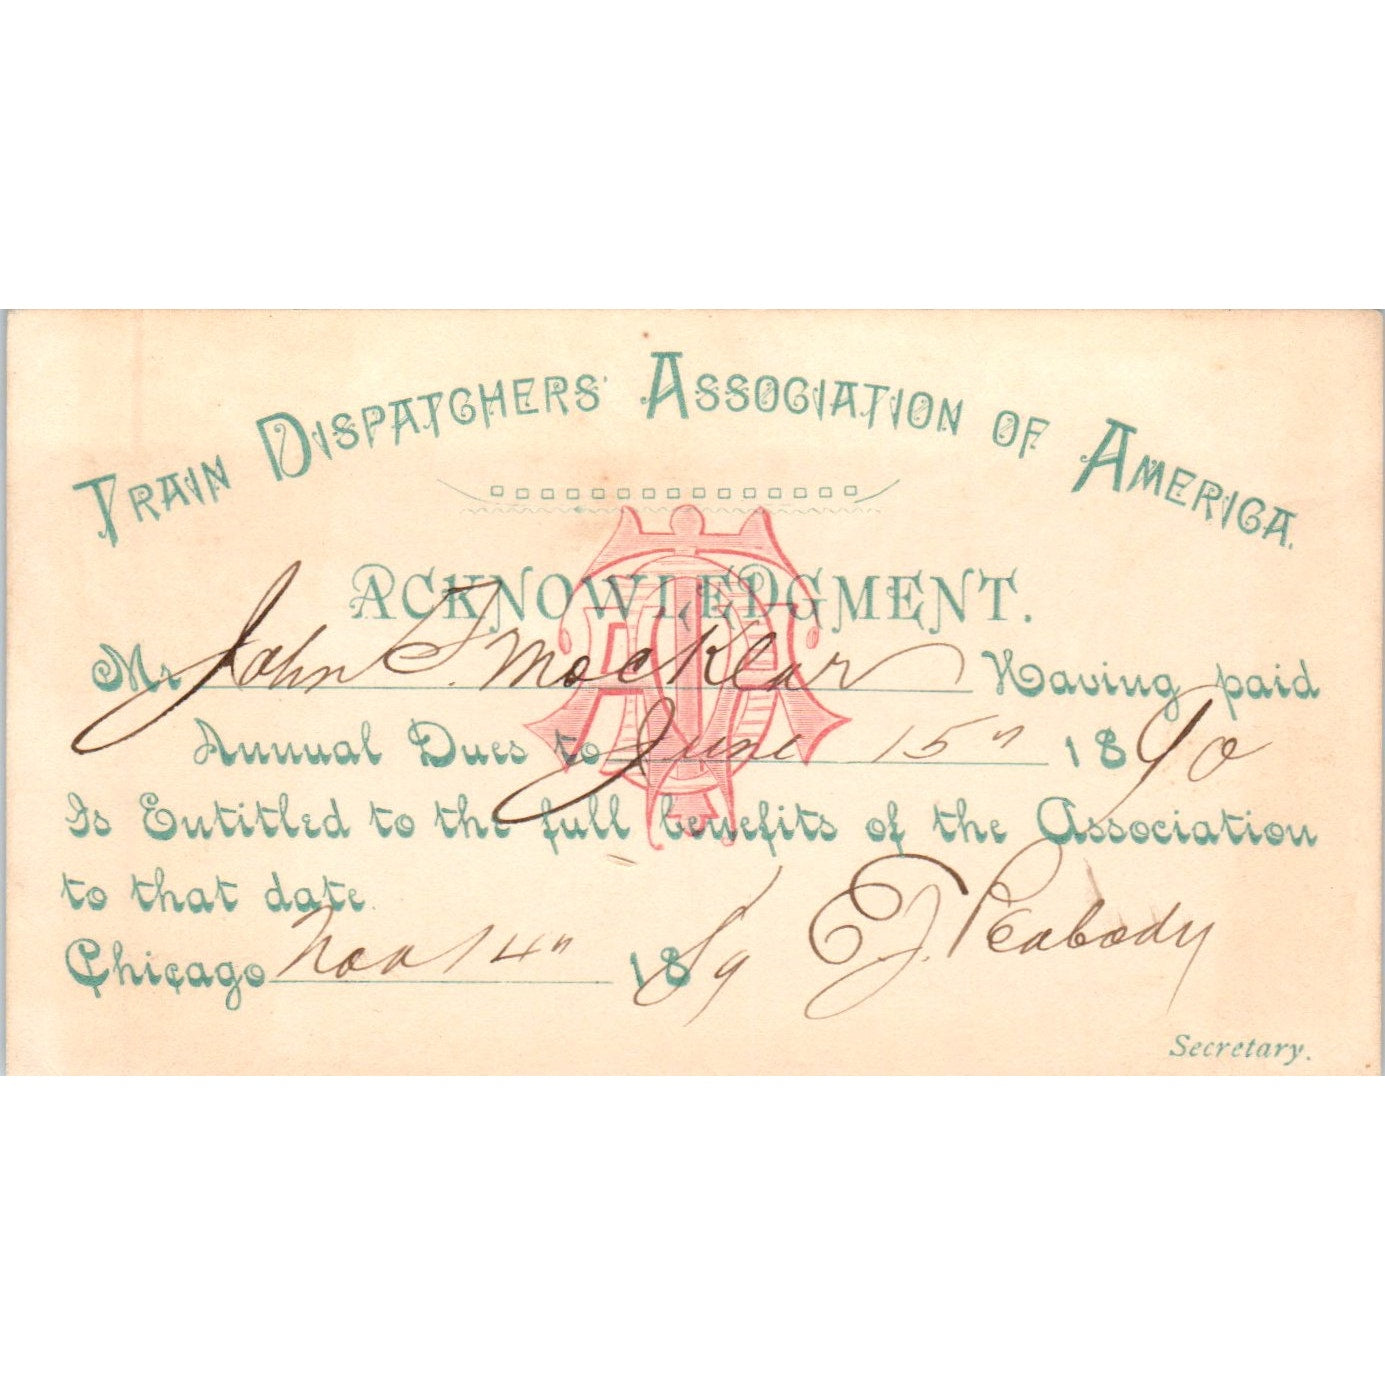 TRAIN DISPATCHERS' ASSOCIATION OF AMERICA.
ACKNOWLEDGMENT.
Mr John T. Mocklar Having paid
Annual Dues to June 15" 1890
Is Entitled to the full benefits of the Association
to that date.
Chicago Nov 14" 1889 E. J. Peabody
Secretary.